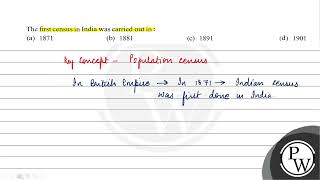 The first census in India was carried out in :
(a) 1871 (b) 1881 (c) 1891 (d) 1901
Key Concept - Population census
In British Empire → In 1871 → Indian census
was first done in India.
PW